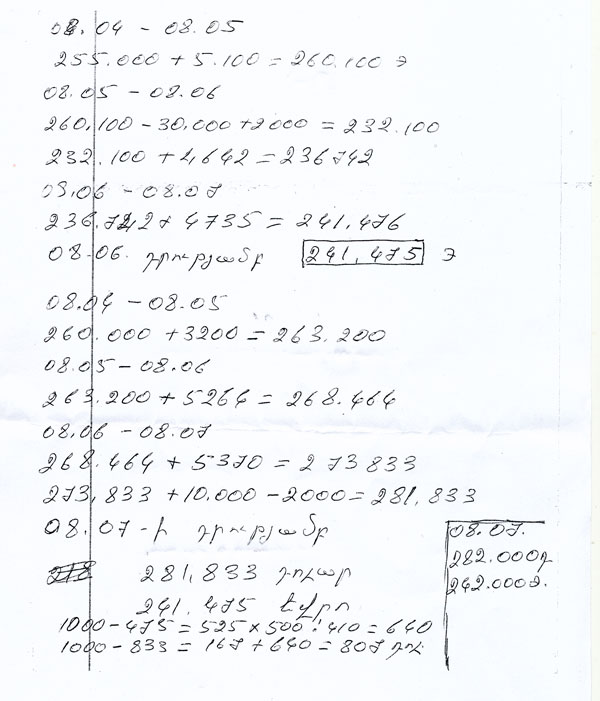 08.04 - 08.05
255.000 + 5.100 = 260.100 Э
08.05 - 08.06
260,100 - 30,000 + 2000 = 232.100
232.100 + 4,642 = 236742
08,06 - 08.07
236.742 + 4735 = 241,476
08.06. դրությամբ 241,475 Э
08.04 - 08.05
260.000 + 3200 = 263.200
08.05 - 08.06
263.200 + 5264 = 268.464
08,06 - 08.07
268.464 + 5370 = 273833
273,833 + 10,000 - 2000 = 281,833
08.07-ի դրությամբ
281,833 դոլար
241.475 եվրո
1000 - 475 = 525 x 500 : 410 = 640
1000 - 833 = 167 + 640 = 807 դոլ
08.07.
282.000դ
242.000Э.